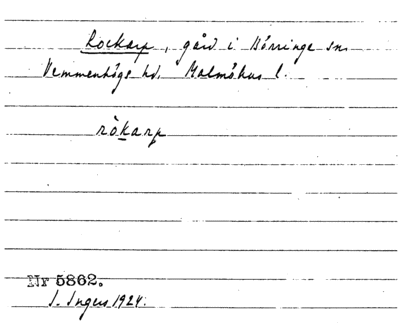 Rockarp, gård i Börringe sn.
Vemmenhögs hd. Malmöhus l.
ròkarp
Nr 5862.
I. Ingers 1924.